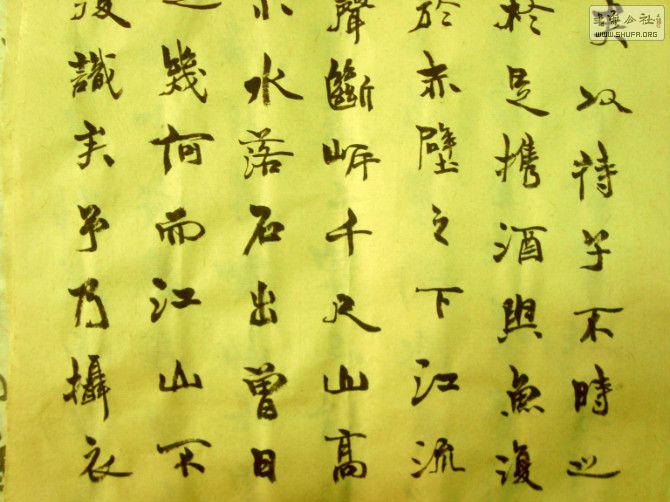 矣以待子不時之
於是携酒與魚復
於赤壁之下江流
聲斷岸千尺山高
小水落石出曾日
之幾何而江山不
復識矣予乃攝衣
WWW.SHUFA.ORG